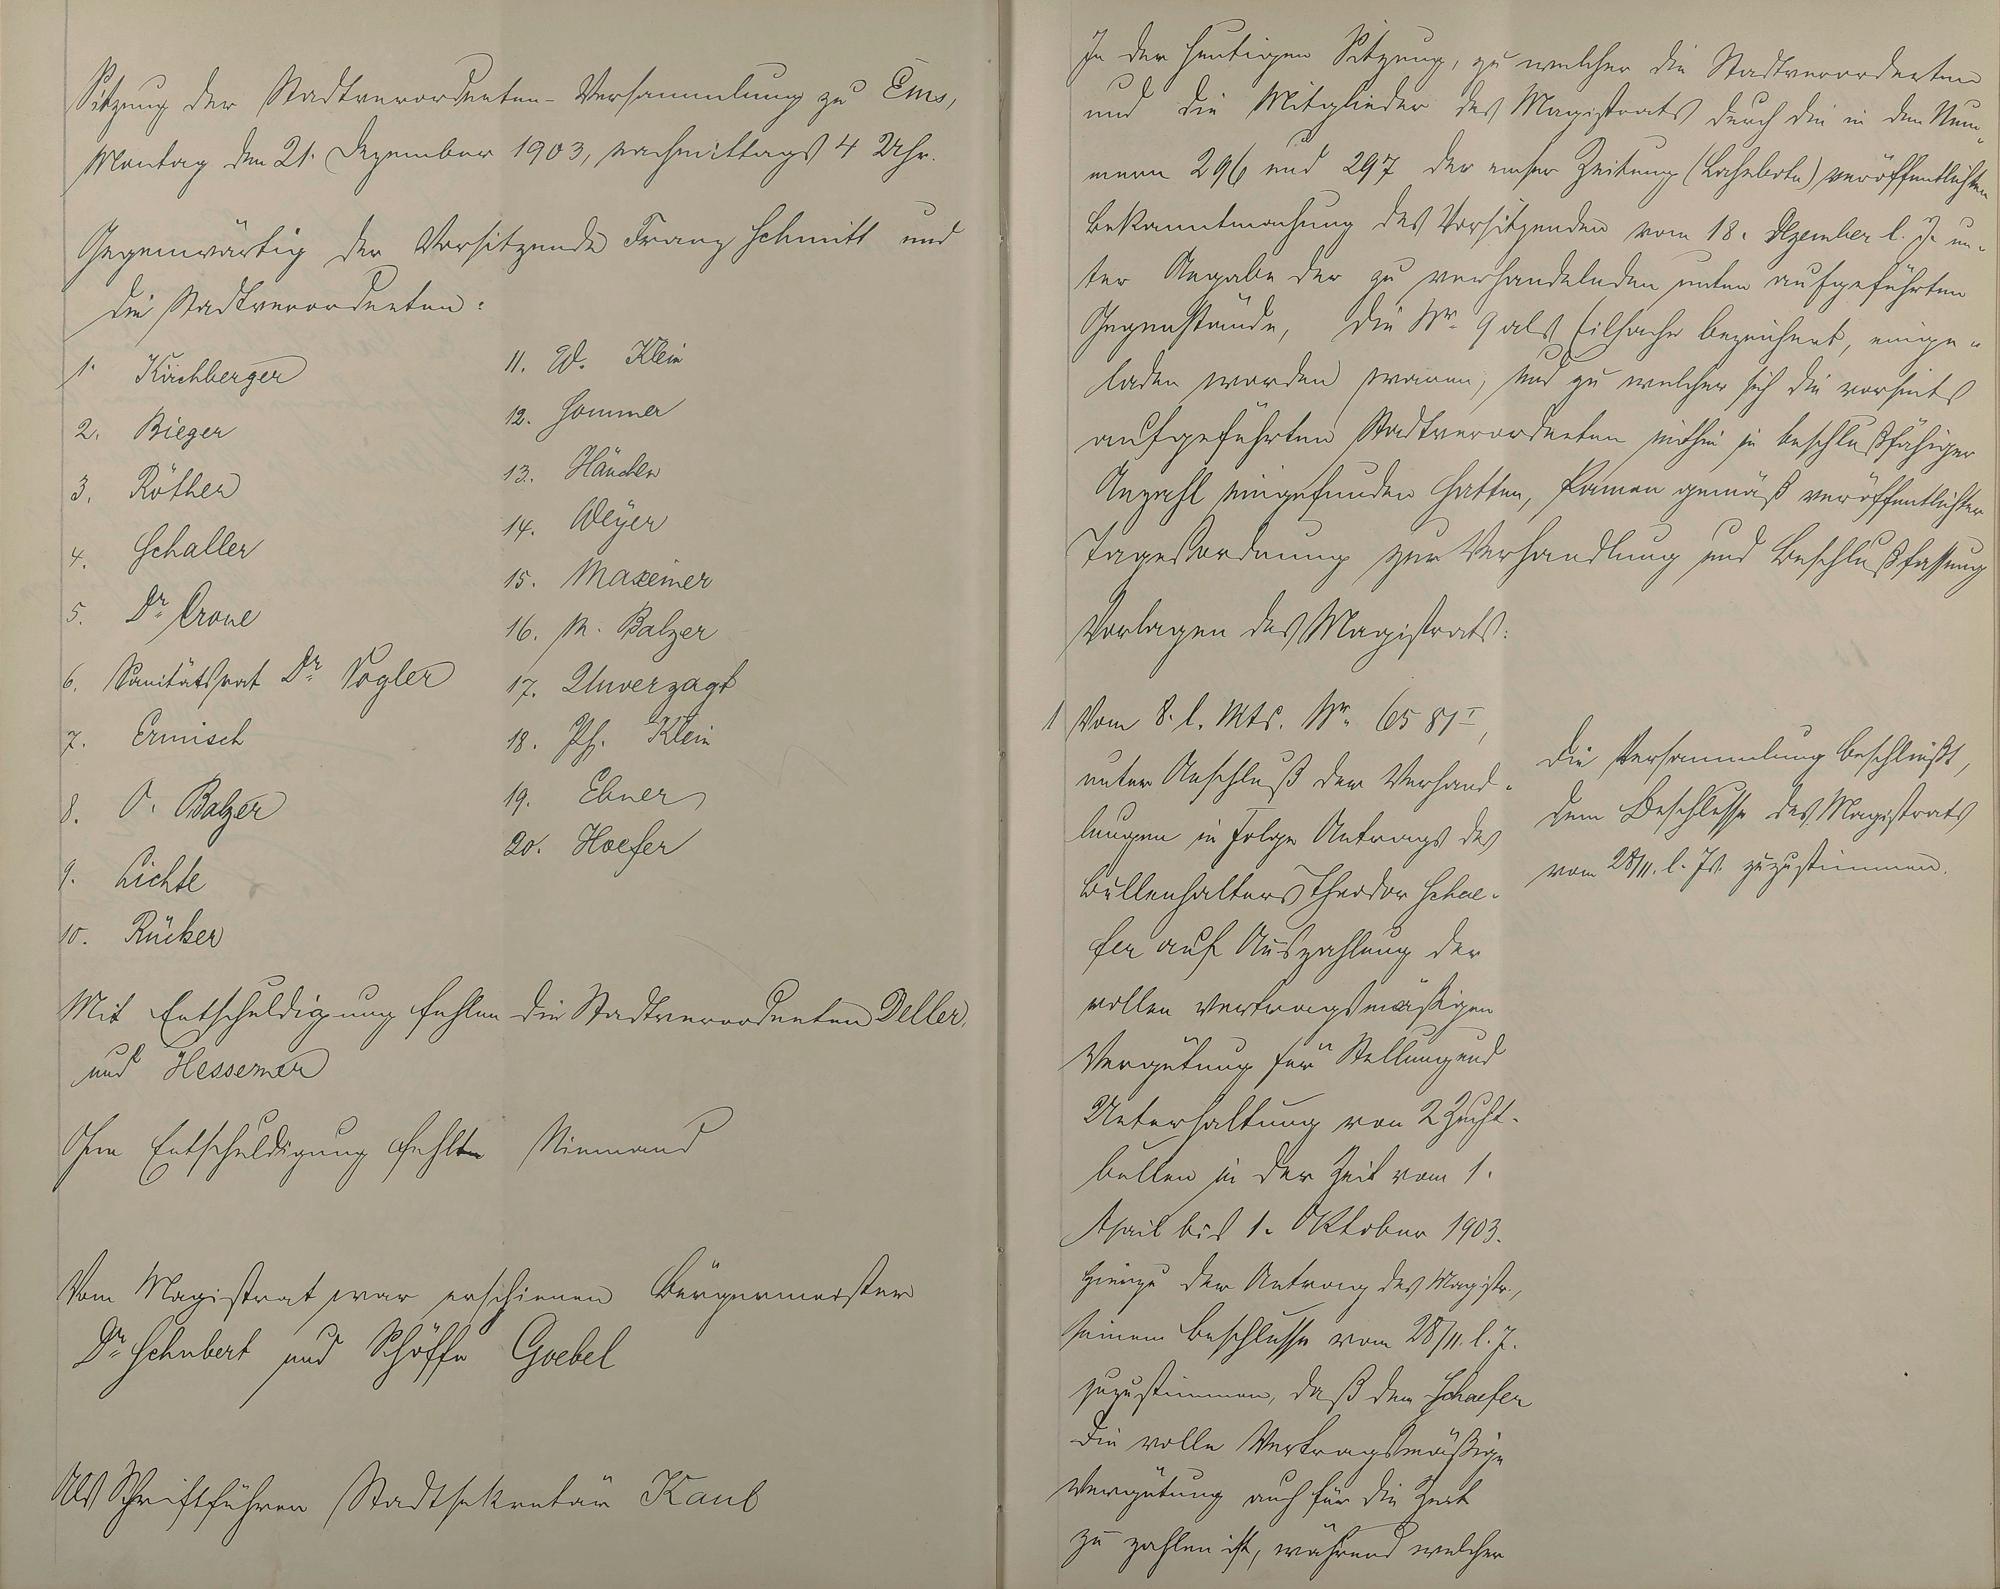 Sitzung der Stadtverordneten-Versammlung zu Ems,
Montag den 21. Dezember 1903, nachmittags 4 Uhr.
Gegenwärtig der Vorsitzende Franz Schmitt und
die Stadtverordneten:
1. Kirchberger
2. Bieger
3. Röther
4. Schaller
5. Dr. Crone
6. Sanitätsrat Dr. Vogler
7. Ermisch
8. O. Balzer
9. Lichte
10. Rücker
11. W. Klein
12. Sommer
13. Hänchen
14. Weyer
15. Maxeiner
16. M. Balzer
17. Unverzagt
18. Ph. Klein
19. Ebner
20. Hoefer
Mit Entschuldigung fehlen die Stadtverordneten Deller
und Hessemer
Ohne Entschuldigung fehlte Niemand
Vom Magistrat war erschienen Bürgermeister
Dr. Schubert und Schöffe Goebel
Als Schriftführer Stadtsekretär Kaul
In der heutigen Sitzung, zu welcher die Stadtverordneten
und die Mitglieder des Magistrats durch die in den Num-
mern 296 und 297 der emser Zeitung (Lahnbote) veröffentlichten
Bekanntmachung des Vorsitzenden vom 18. Dezember l. J. un-
ter Angabe der zu verhandelnden unten aufgeführten
Gegenstände, die Nr. 9 als Eilsache bezeichnet, einge-
laden worden waren, und zu welcher sich die vorseits
aufgeführten Stadtverordneten mithin in beschlußfähiger
Anzahl eingefunden hatten, kamen gemäß veröffentlichter
Tagesordnung zur Verhandlung und Beschlußfassung
Vorlagen des Magistrats:
1 Vom 8. l. Mts. Nr. 6581 I,
unter Anschluß der Verhand-
lungen in Folge Antrags des
Bullenhalters Theodor Schae-
fer auf Auszahlung der
vollen vertragsmäßigen
Vergütung für Stellung und
Unterhaltung von 2 Zucht-
bullen in der Zeit vom 1.
April bis 1. Oktober 1903.
Hierzu der Antrag des Magistr.,
seinem Beschlusse vom 28/11. l. J.
zuzustimmen, daß dem Schaefer
die volle Vertragsmäßige
Vergütung auch für die Zeit
zu zahlen ist, während welcher
Die Versammlung beschließt,
dem Beschlusse des Magistrats
vom 28/11. l. Js. zuzustimmen.